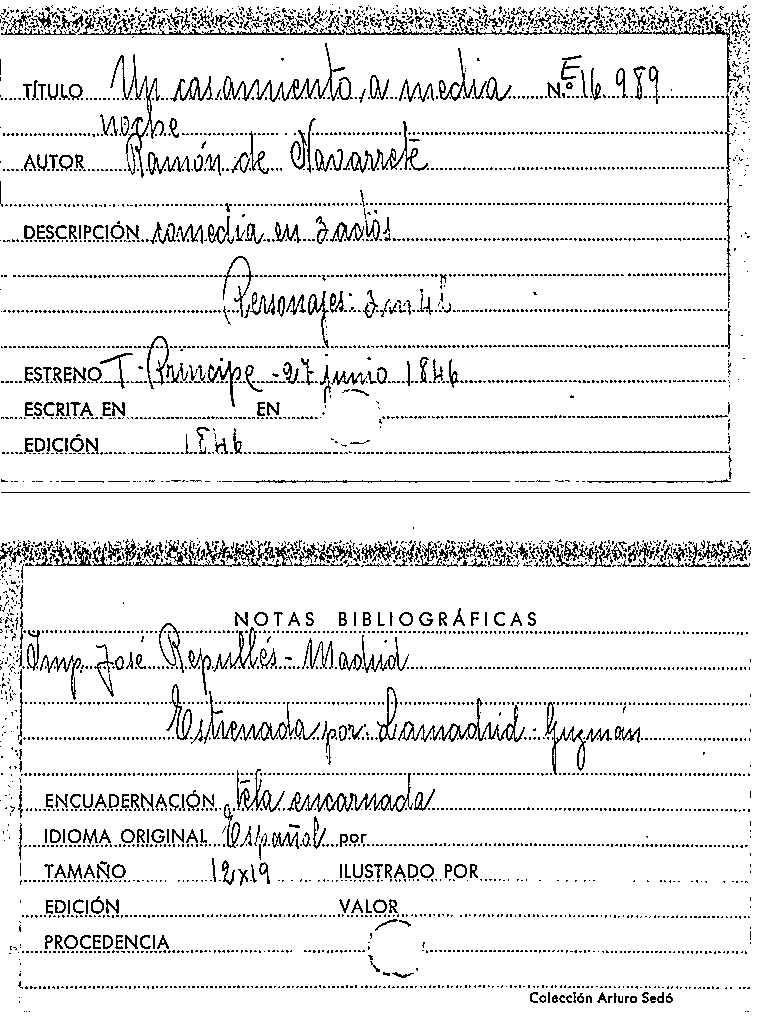 TÍTULO Un casamiento a media Nº E 16 989
noche
AUTOR Ramón de Navarrete
DESCRIPCIÓN comedia en 3 actos
Personajes: 3 m 4 h
ESTRENO T. Príncipe - 27 junio 1846
ESCRITA EN EN
EDICIÓN 1846
NOTAS BIBLIOGRÁFICAS
Imp. José Repullés - Madrid
Estrenada por: Lamadrid - Guzmán
ENCUADERNACIÓN tela encarnada
IDIOMA ORIGINAL Español por
TAMAÑO 12x19 ILUSTRADO POR
EDICIÓN VALOR
PROCEDENCIA
Colección Arturo Sedó